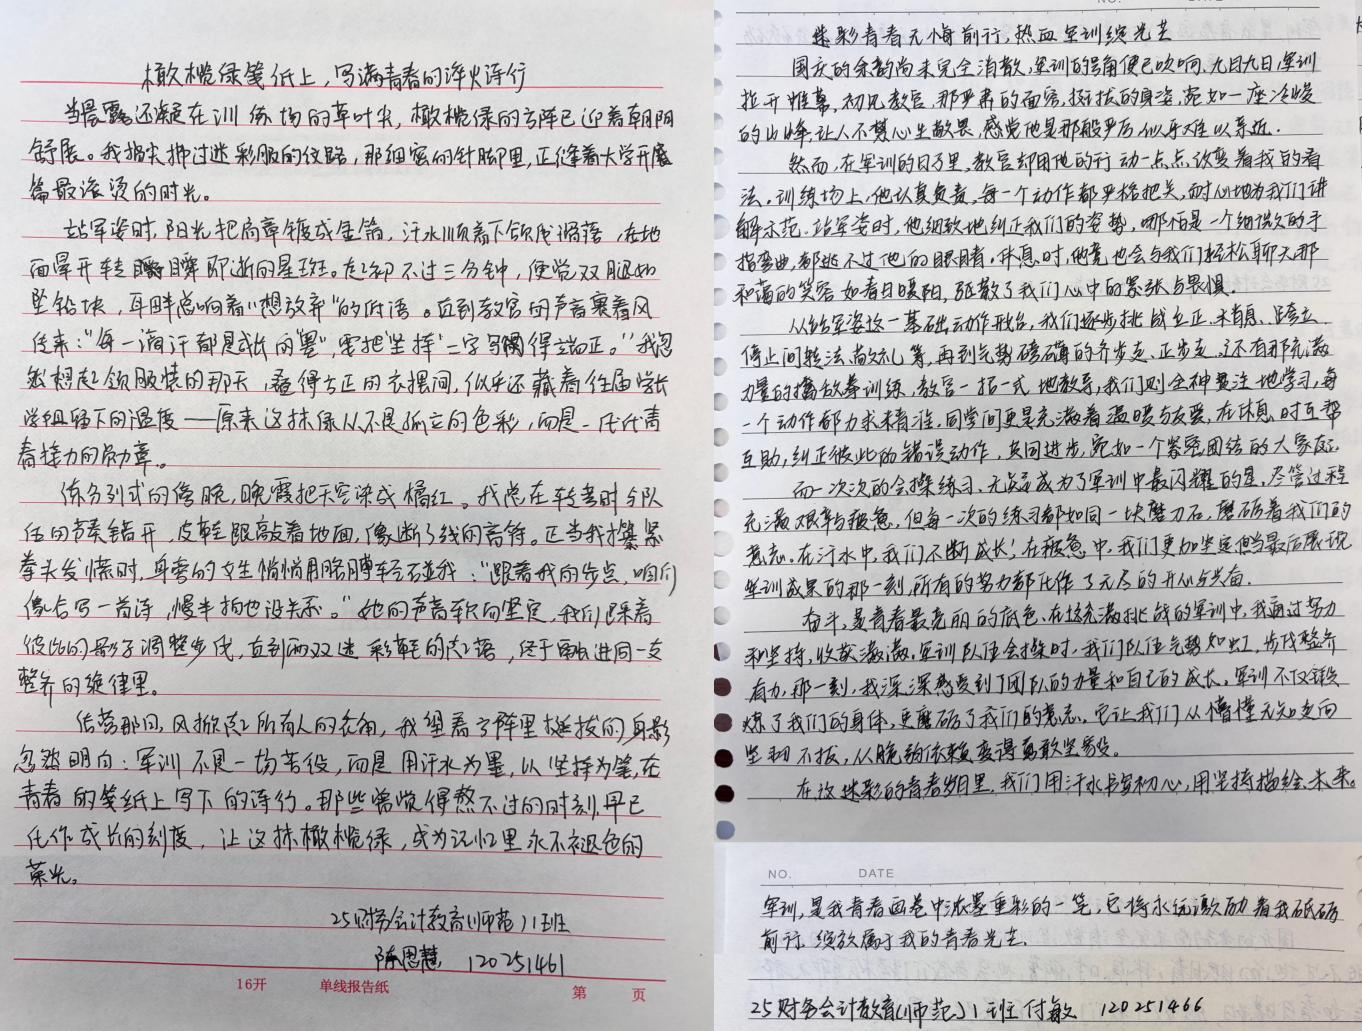 橄榄绿笺纸上，写满青春的淬火诗行
当晨露还凝在训练场的草叶尖，橄榄绿的方阵已迎着朝阳
舒展。我指尖拂过迷彩服的纹路，那细密的针脚里，正缝着大学开
篇最滚烫的时光。
站军姿时，阳光把肩章镀成金箔，汗水顺着下颌线滑落，在地
面晕开转瞬即逝的星斑。起初不过三分钟，便觉双腿如
坠铅块，耳畔总响着"想放弃"的低语。直到教官的声音裹着风
传来："每一滴汗都是成长的墨，要把'坚持'二字写得端正。"我忽
然想起领服装的那天，叠得方正的衣摆间，似乎还藏着往届学长
学姐留下的温度——原来这抹绿从不是孤立的色彩，而是一代代青
春接力的勋章。
练分列式的傍晚，晚霞把天空染成橘红。我总在转弯时与队
伍的节奏错开，皮鞋跟敲着地面，像断了线的音符。正当我攥紧
拳头发懊时，身旁的女生悄悄用胳膊轻碰我："跟着我的步点，咱们
像合写一首诗，慢半拍也没关系。"她的声音软而坚定，我们踩着
彼此的影子调整步伐，直到两双迷彩鞋的起落，终于融进同一支
整齐的旋律里。
结营那日，风掀起所有人的衣角，我望着方阵里挺拔的身影
忽然明白：军训不是一场苦役，而是用汗水为墨，以坚持为笔，在
青春的笺纸上写下的诗行。那些曾觉得熬不过的时刻，早已
化作成长的刻度，让这抹橄榄绿，成为记忆里永不褪色的
荣光。
25财务会计教育(师范)1班
陈思慧 120251461
16开 单线报告纸 第 页
NO. DATE
迷彩青春无悔前行，热血军训绽光芒
国庆的余韵尚未完全消散，军训的号角便已吹响。九月九日，军训
拉开帷幕，初见教官，那严肃的面容，挺拔的身姿，宛如一座冷峻
的山峰，让人不禁心生敬畏，感觉他是那般严厉，似乎难以亲近.
然而，在军训的日子里，教官却用他的行动一点点改变着我的看
法。训练场上，他认真负责，每一个动作都严格把关，耐心地为我们讲
解示范.站军姿时，他细致地纠正我们的姿势，哪怕是一个细微的手
指弯曲，都逃不过他的眼睛。休息时，他竟也会与我们轻松聊天，那
和蔼的笑容如春日暖阳，驱散了我们心中的紧张与畏惧.
从站军姿这一基础动作开始，我们逐步挑战立正、稍息、跨立、
停止间转法、敬礼等，再到气势磅礴的齐步走、正步走，还有那充满
力量的擒敌拳训练，教官一招一式地教导，我们则全神贯注地学习，每
一个动作都力求精准。同学间更是充满着温暖与友爱，在休息时互帮
互助，纠正彼此的错误动作，共同进步，宛如一个紧密团结的大家庭.
而一次次的会操练习，无疑成为了军训中最闪耀的星，尽管过程
充满艰辛与疲惫，但每一次的练习都如同一块磨刀石，磨砺着我们的
意志.在汗水中，我们不断成长；在疲惫中，我们更加坚定.当最后展现
军训成果的那一刻，所有的努力都化作了无尽的开心与兴奋.
奋斗，是青春最亮丽的底色，在这充满挑战的军训中，我通过努力
和坚持，收获满满，军训队伍会操时，我们队伍气势如虹，步伐整齐
有力，那一刻，我深深感受到了团队的力量和自己的成长。军训不仅锻
炼了我们的身体，更磨砺了我们的意志。它让我们从懵懂无知走向
坚韧不拔，从脆弱依赖变得勇敢坚毅。
在这迷彩的青春岁月里，我们用汗水书写初心，用坚持描绘未来。
NO. DATE
军训，是我青春画卷中浓墨重彩的一笔，它将永远激励着我砥砺
前行.绽放属于我的青春光芒.
25财务会计教育(师范)1班 付敏 120251466